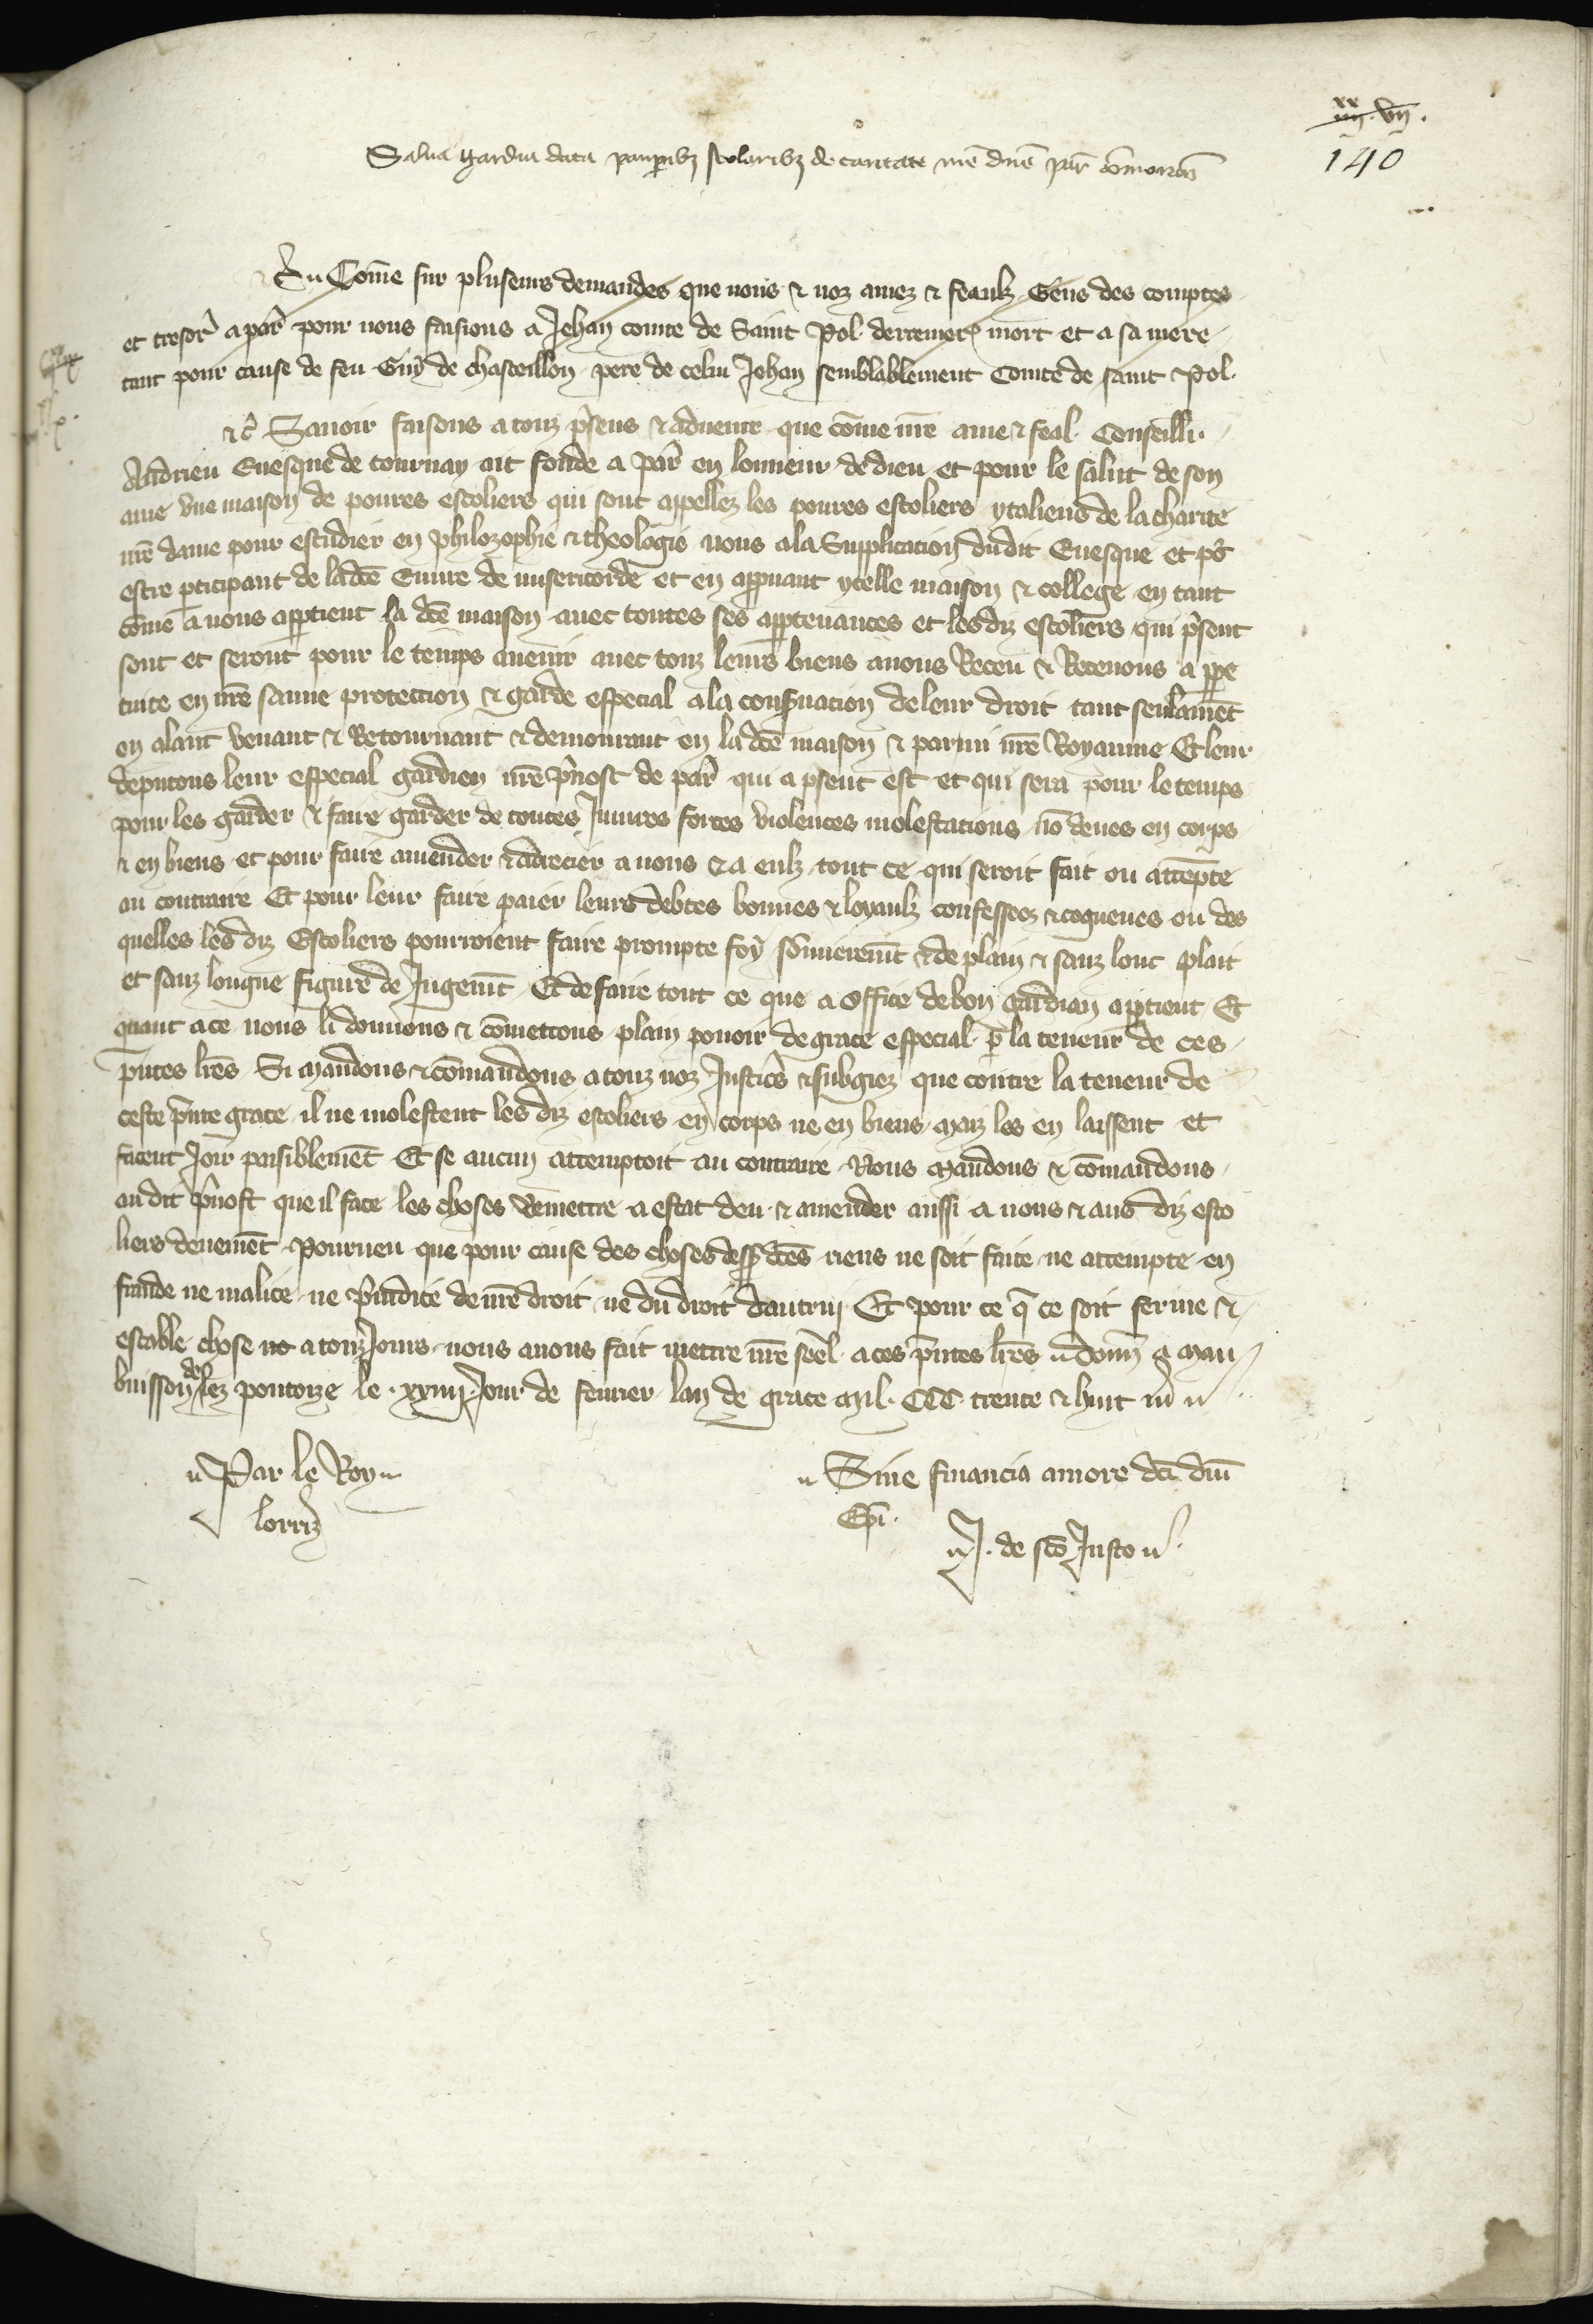 xx
iiii. vii.
140
Salva gardia data pauperibz scolaribz de caritate nre dne par commorantibz
Cu Cōme sur pluseurs demandes que nous & noz amez & feaulz Gens des comptes
et tresorˢ a par̄ pour nous faisions a Jehan conte de Saint Pol derremet̄ mort et a sa mere
tant pour cause de feu Guy de chasteillon pere de celui Jehan semblablement Conte de saint Pol
&c̄ Savoir faisons a touz p̄sens & advenir que cōme nr̄e ame & feal Conseillr
Andrieu Evesque de tournay ait fonde a par̄ en lonneur de dieu et pour le salut de son
ame une maison de povres escoliers qui sont appellez les povres escoliers ytaliens de la charite
nr̄e dame pour estudier en philozophie & theologie nous a la Supplicacion dudit Evesque et po᷒
estre pticipant de lad̄ce euvre de misericorde et en appruvant ycelle maison & college en tant
cōme a nous appartient la d̄ce maison avec toutes ses appartenances et les diz escoliers qui p̄sent
sont et seront pour le temps avenir avec touz leurs biens avons Receu & Recevons a ppe
tuite en nr̄e sauve protection & garde especial a la cons̄vacion de leur droit tant seulamēt
en alant venant & Retournant & demourant en la d̄ce maison & parmi nr̄e Royaume Et leur
deputons leur especial gardien nr̄e p̄vost de par̄ qui a p̄sent est et qui sera pour le temps
pour les garder & faire garder de toutes Injures forces violences molestacions nō deues en corps
& en biens et pour faire amender & adrecier a nous & a eulz tout ce qui seroit fait ou attēpte
au contraire Et pour leur faire paier leurs debtes bonnes & loyaulz confessees & cogneues ou des
quelles les diz Escoliers pourroient faire prompte foy sōmeremt̄ & de plain & sanz lonc plait
et sanz longue figure de Jugemt̄ Et de faire tout ce que a office de bon gardian aptient Et
quant a ce nous li donnons & cōmettons plain povoir de grace especial p̄ la teneur de ces
p̄ntes lr̄es Si mandons & cōmandons a touz noz Justicˢ & subgiez que contre la teneur de
ceste p̄nte grace il ne molestent les diz escoliers en corps ne en biens maiz les en laissent et
facent Joir paisiblemēt Et se aucun attemptoit au contraire Nous mandons & cōmandons
au dit p̄vost que il face les choses Remettre a estat deu & amender aussi a nous & aus diz esco
liers deuemēt Pourveu que pour cause des choses dess̄ d̄ces riens ne soit faite ne attempte en
fraude ne malice ne p̄iudice de nr̄e droit ne du droit dautruy Et pour ce q̄ ce soit ferme &
estable chose a touz Jours nous avons fait mettre nr̄e seel a ces p̄ntes lr̄es Donn̄ a Mau
buisson de lez pontoize le xxiiij. Jour de fevrier lan de grace Mil. CCC. trente & huit
Par le Roy
lorriz
Sine financia amore d̄ci dn̄i
Ep̄i.
J. de sc̄o Justo